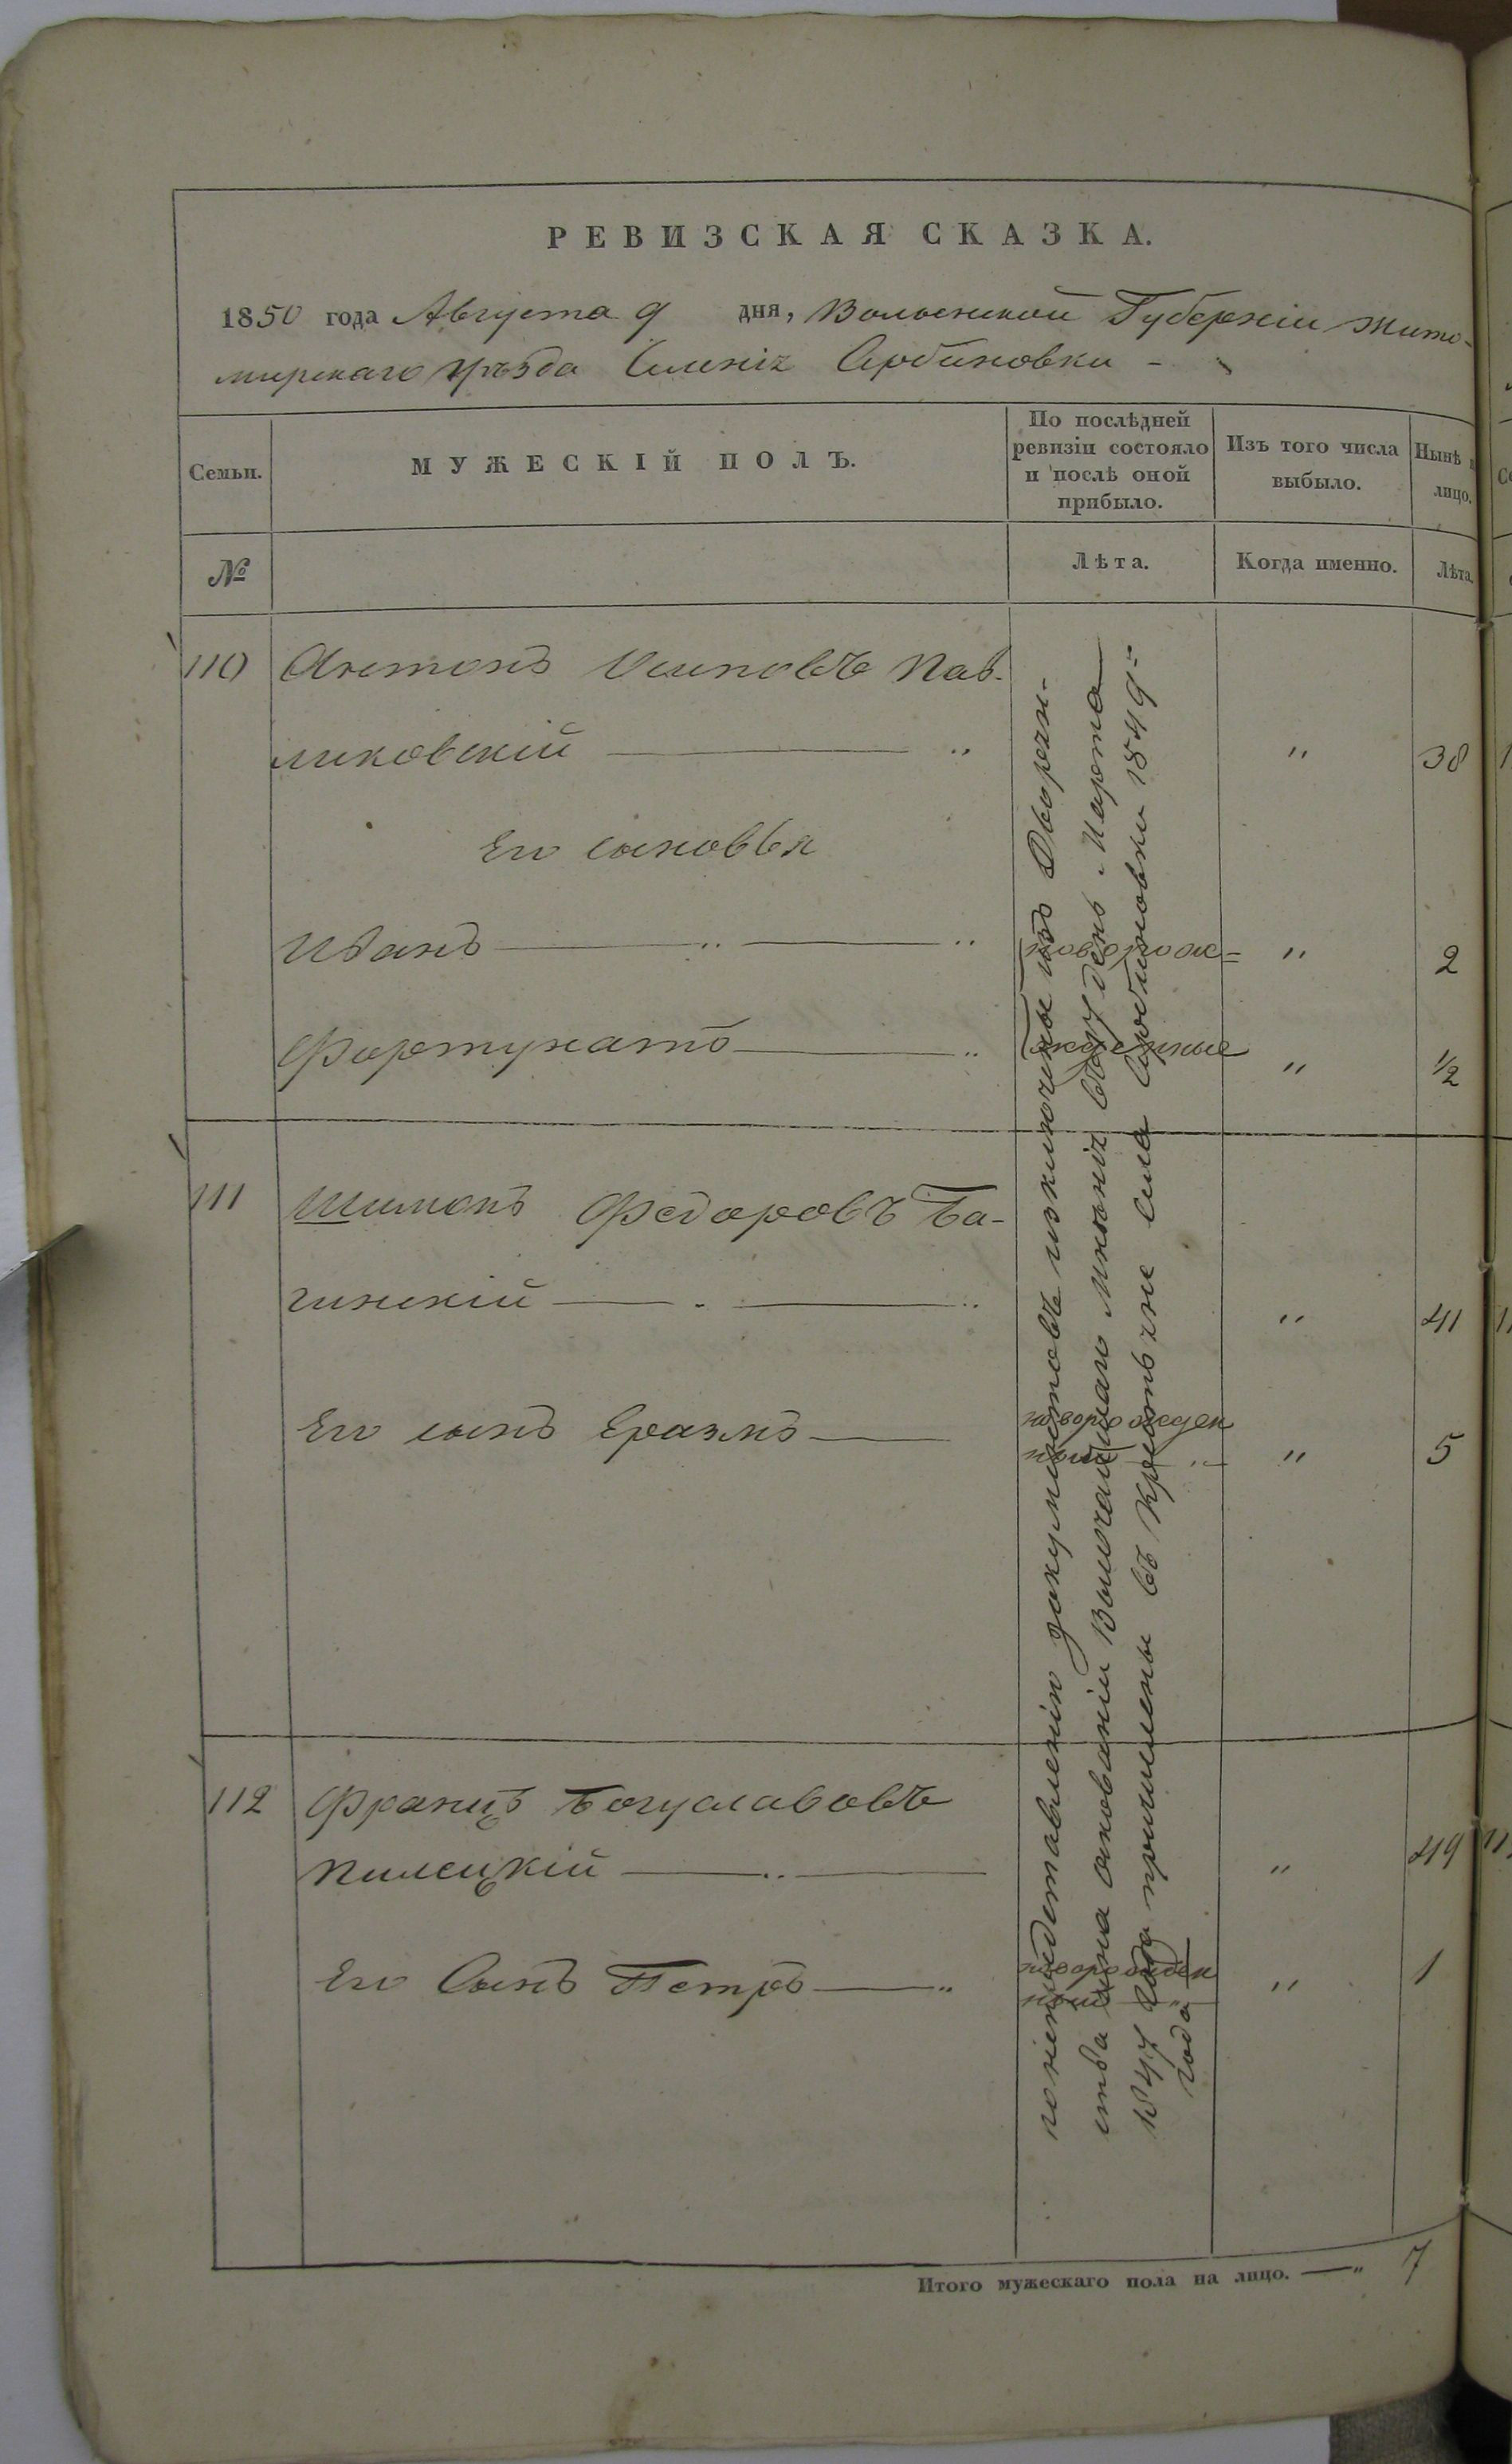 РЕВИЗСКАЯ СКАЗКА.
1850 года Августа 9 дня, Волынской Губерніи Жито-
мирскаго уѣзда Сербиновки -
Семьи.
МУЖЕСКІЙ ПОЛЪ.
По послѣдней
ревизіи состояло
и послѣ оной
прибыло.
Изъ того числа
выбыло.
Нынѣ
лицо.
№
Лѣта.
Когда именно.
Лѣта
110 Антонъ Осиповъ Пав-
ликовскій — „ „ 38
Его сыновья
Иванъ — „ — „ новорож= „ 2
Фортунатъ — „ жденные „ ½
111 Шимонъ Федоровъ Ба-
гинскій — . — „ „ 41
Его сынъ Еразмъ — новорожден
ный — „ 5
112 Францъ Богуславовъ
Пилецкій — „ — „ 49
Его Сынъ Петръ — „ новорожден
ный — „ „ 1
документовъ исключены изъ Дворян-
ства на основаніи Высочайшаго въ 7 день Марта
1847 года причислены въ села Сербиновки 1849 =
года
Итого мужескаго пола на лицо. — „ 7